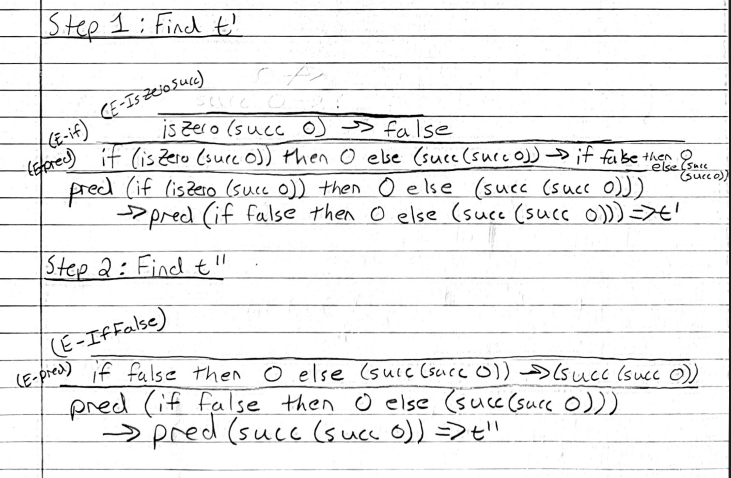 Step 1: Find t'
(E-IsZeroSucc)
(E-if) iszero (succ 0) → false
(E-pred) if (iszero (succ 0)) then 0 else (succ(succ 0)) → if false then 0 else (succ (succ 0))
pred (if (iszero (succ 0)) then 0 else (succ (succ 0)))
→ pred (if false then 0 else (succ (succ 0))) => t'
Step 2: Find t"
(E-IfFalse)
(E-pred) if false then 0 else (succ (succ 0)) → (succ (succ 0))
pred (if false then 0 else (succ(succ 0)))
→ pred (succ (succ 0)) => t"